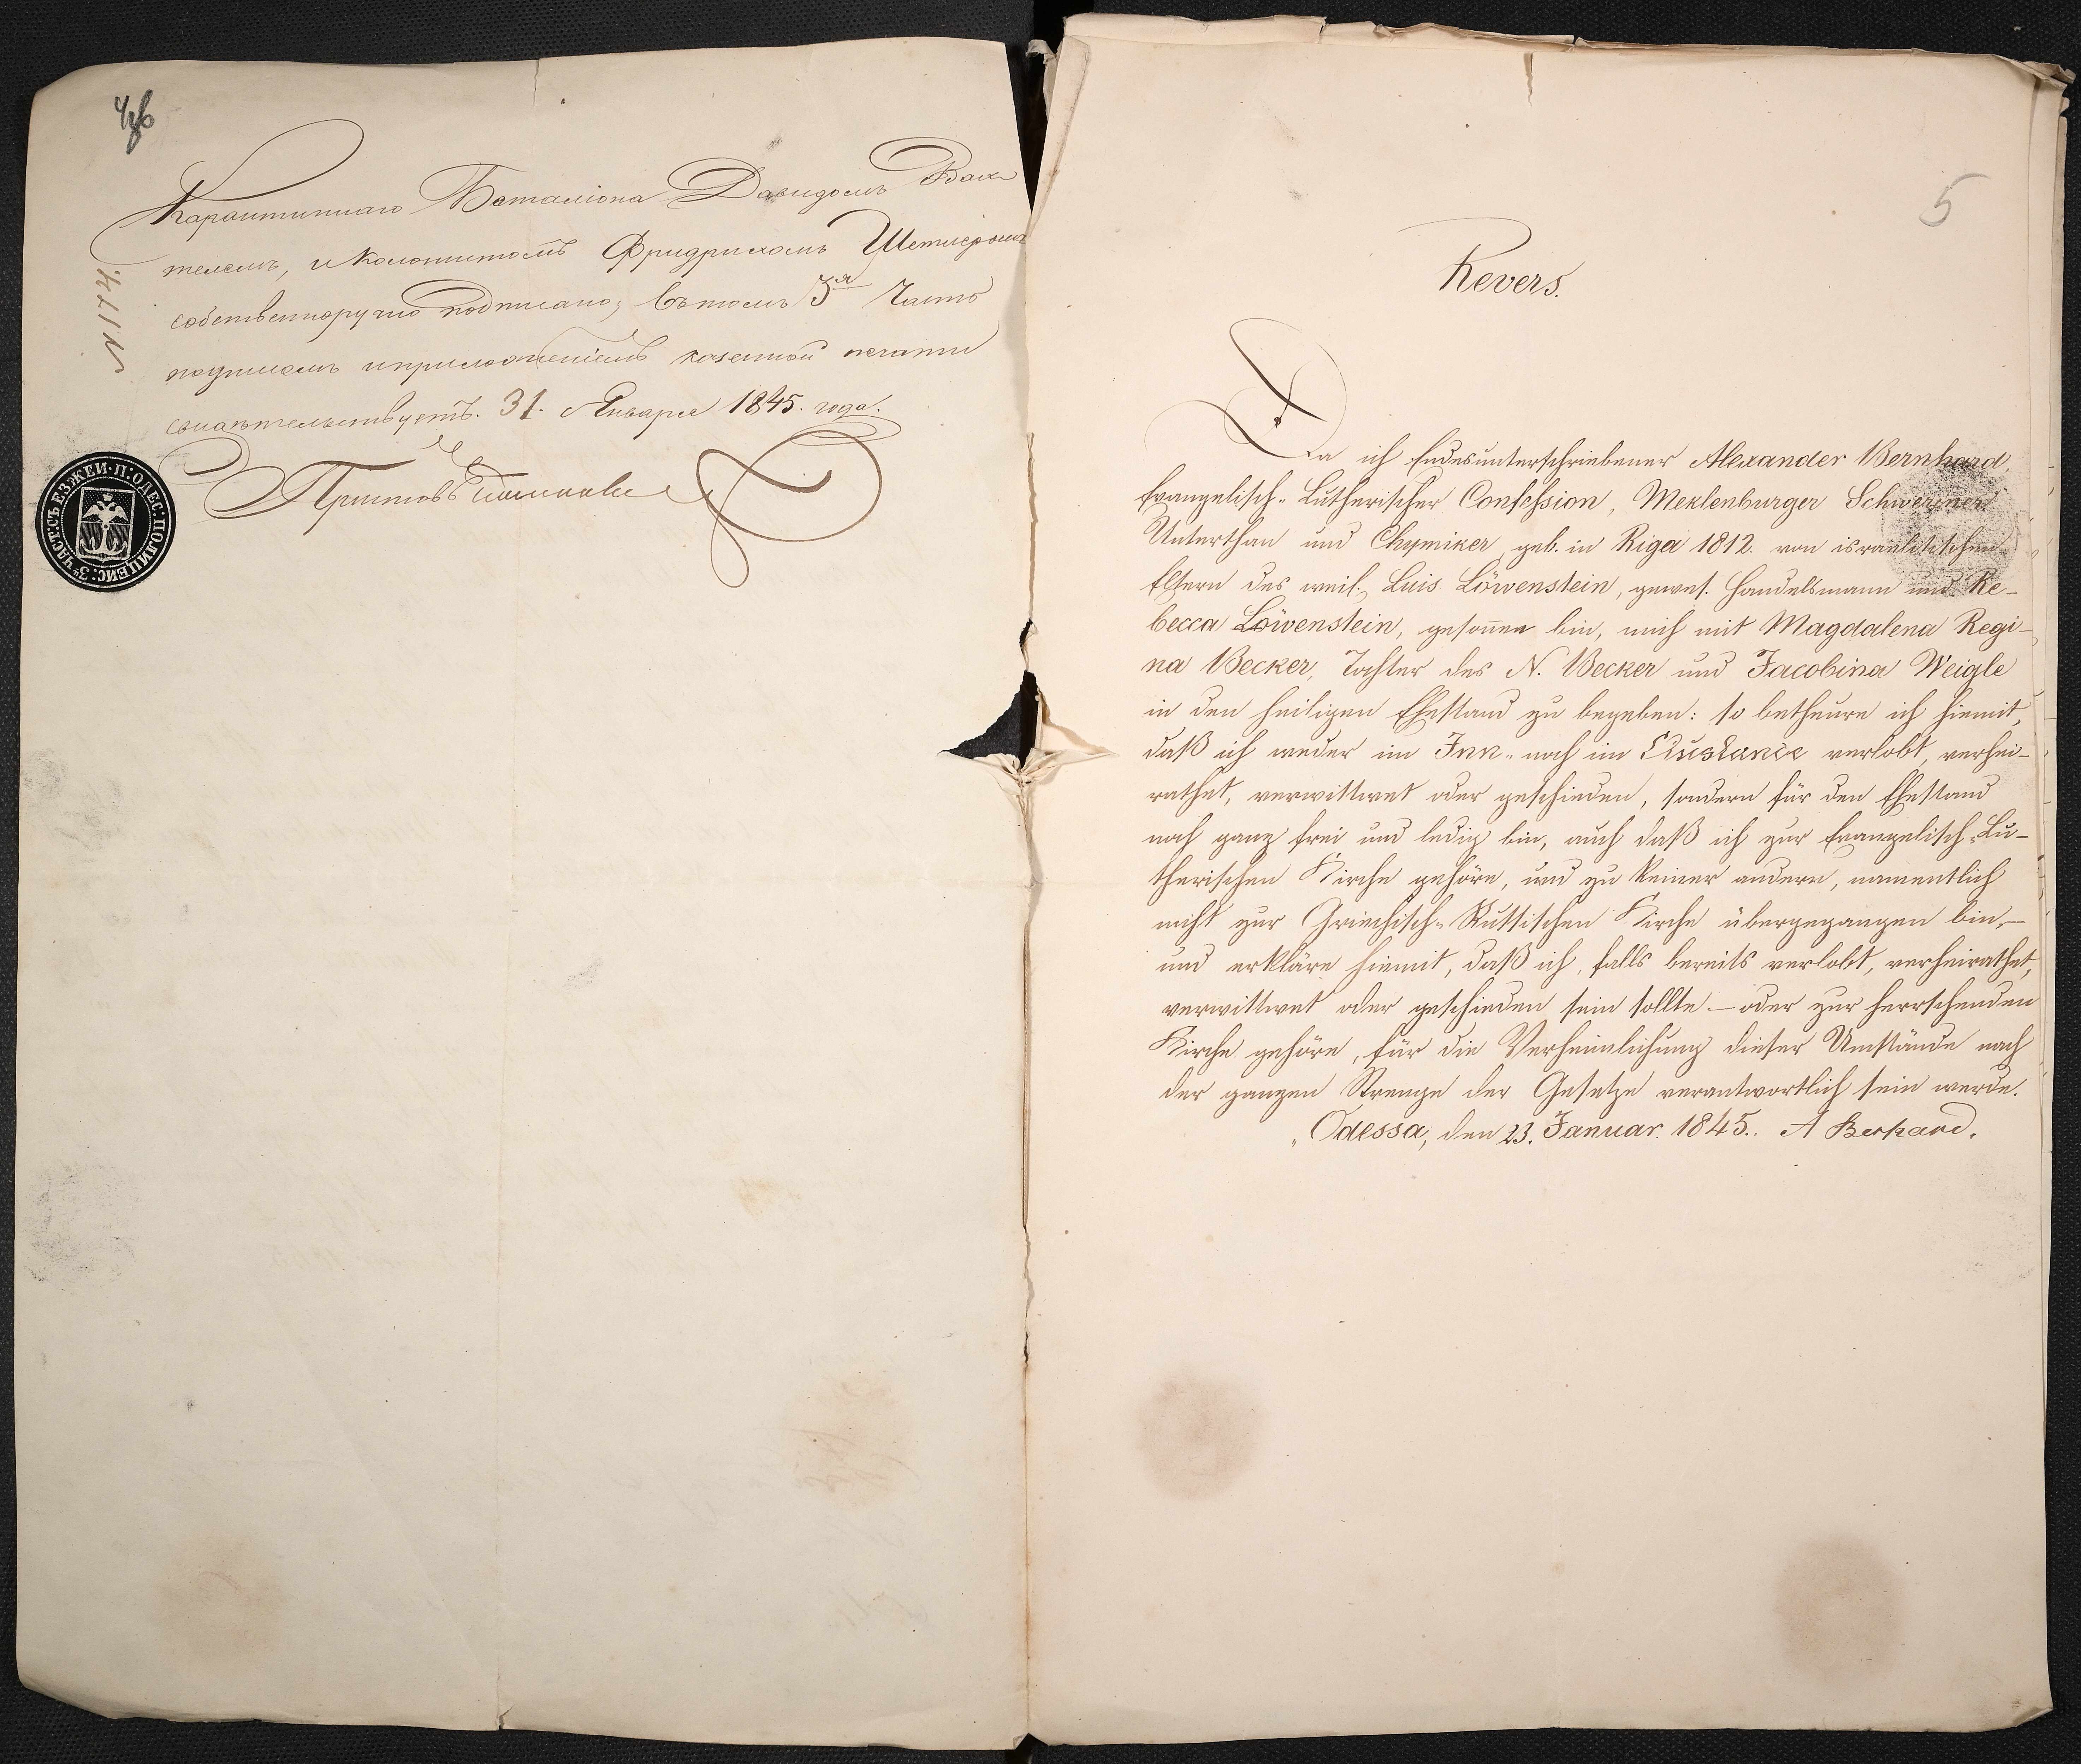 4об
Карантиннаго Баталіона Давидомъ Вах
телемъ, и Колонистомъ Фридрихомъ Шетлеромъ
собственноручно подписано, въ томъ 3я Часть
подписомъ и приложеніемъ казенной печати
свидѣтельствуетъ. 31. Января 1845. года.
Приставъ
N 1174
3й ЧАСТ: СЪЕЗЖЕЙ· П: ОДЕС: ПОЛИЦЕИС:
5
Revers.
Da ich Endesunterschriebener Alexander Bernhard,
Evangelisch-Lutherischer Confession, Meklenburger Schweriner
Unterthan und Chymiker, geb. in Riga 1812. von israelitischen
Eltern des weil. Luis Löwenstein, gewes. Handelsmann und Re-
becca Löwenstein, gesonnen bin, mich mit Magdalena Regi-
na Becker, Tochter des N. Becker und Jacobina Weigle
in den heiligen Ehestand zu begeben: so betheure ich hiemit,
daß ich weder im Inn- noch im Auslande verlobt, verhei-
rathet, verwittwet oder geschieden, sondern für den Ehestand
noch ganz frei und ledig bin, auch daß ich zur Evangelisch-Lu-
therischen Kirche gehöre, und zu keiner andern, namentlich
nicht zur Griechisch-Russischen Kirche übergegangen bin,—
und erkläre hiemit, daß ich, falls bereits verlobt, verheirathet,
verwittwet oder geschieden sein sollte — oder zur herrschenden
Kirche gehöre, für die Verheimlichung dieser Umstände nach
der ganzen Strenge der Gesetze verantwortlich sein werde.
Odessa, den 23. Januar. 1845. A Bernhard.